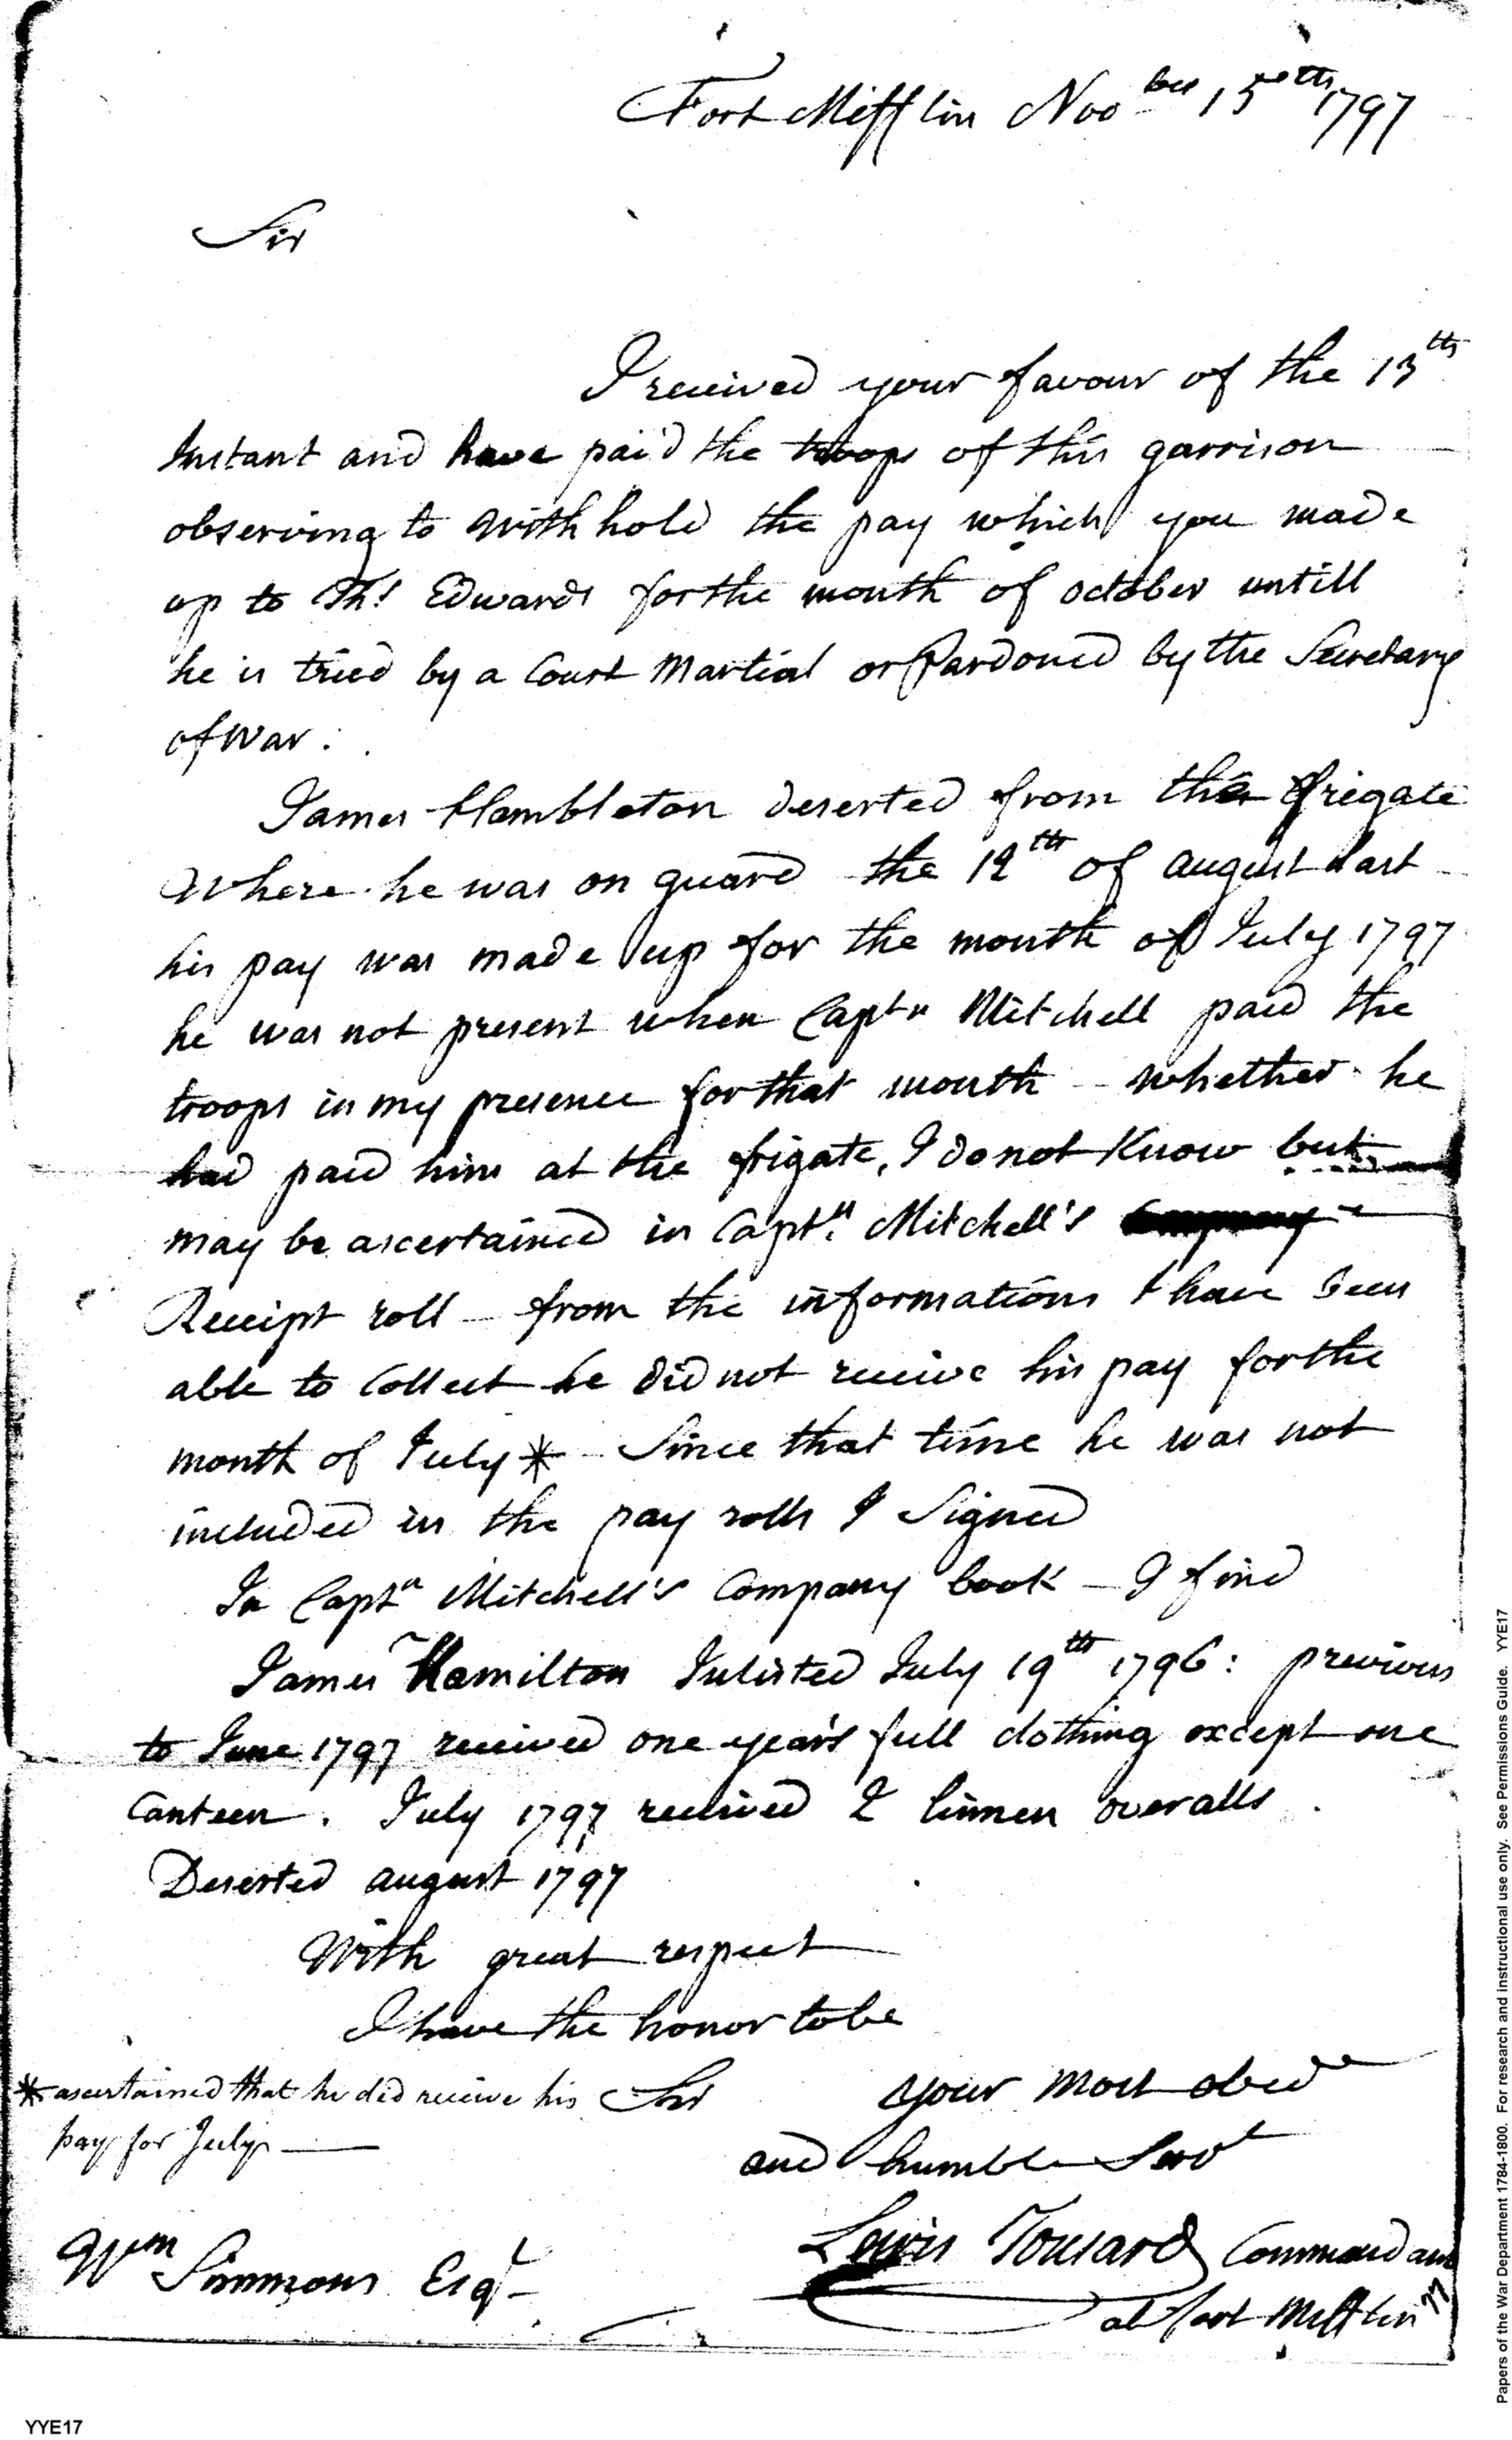 Fort Mifflin Nov ber 15th 1797
Sir
I received your favour of the 13th
Instant and have paid the troops of this garrison
observing to withhold the pay which you made
up to Ths Edwards for the month of october untill
he is tried by a Court Martial or Pardoned by the Secretary
of War.
James Hambleton deserted from the frigate
Where he was on guard the 12th of august last
his pay was made up for the month of July 1797
he was not present when Captn Mitchell paid the
troops in my presence for that month - whether he
had paid him at the frigate, I do not Know but
may be ascertained in Captn Mitchell's Company
Receipt roll - from the informations I have been
able to Collect he did not receive his pay for the
month of July * Since that time he was not
included in the pay rolls I Signed
In Captn Mitchell's Company book - I find
James Hamilton Inlisted July 19th 1796: previous
to June 1797 received one year's full clothing except one
Canteen. July 1797 received 2 linnen overalls.
Deserted august 1797
With great respect
I have the honor to be
Sir
your most obed
and humble Servt
* ascertained that he did receive his
pay for July
Lewis Tousard Commandant
at fort Mifflin
Wm Simmons Esqr
YYE17
Papers of the War Department 1784-1800. For research and instructional use only. See Permissions Guide. YYE17